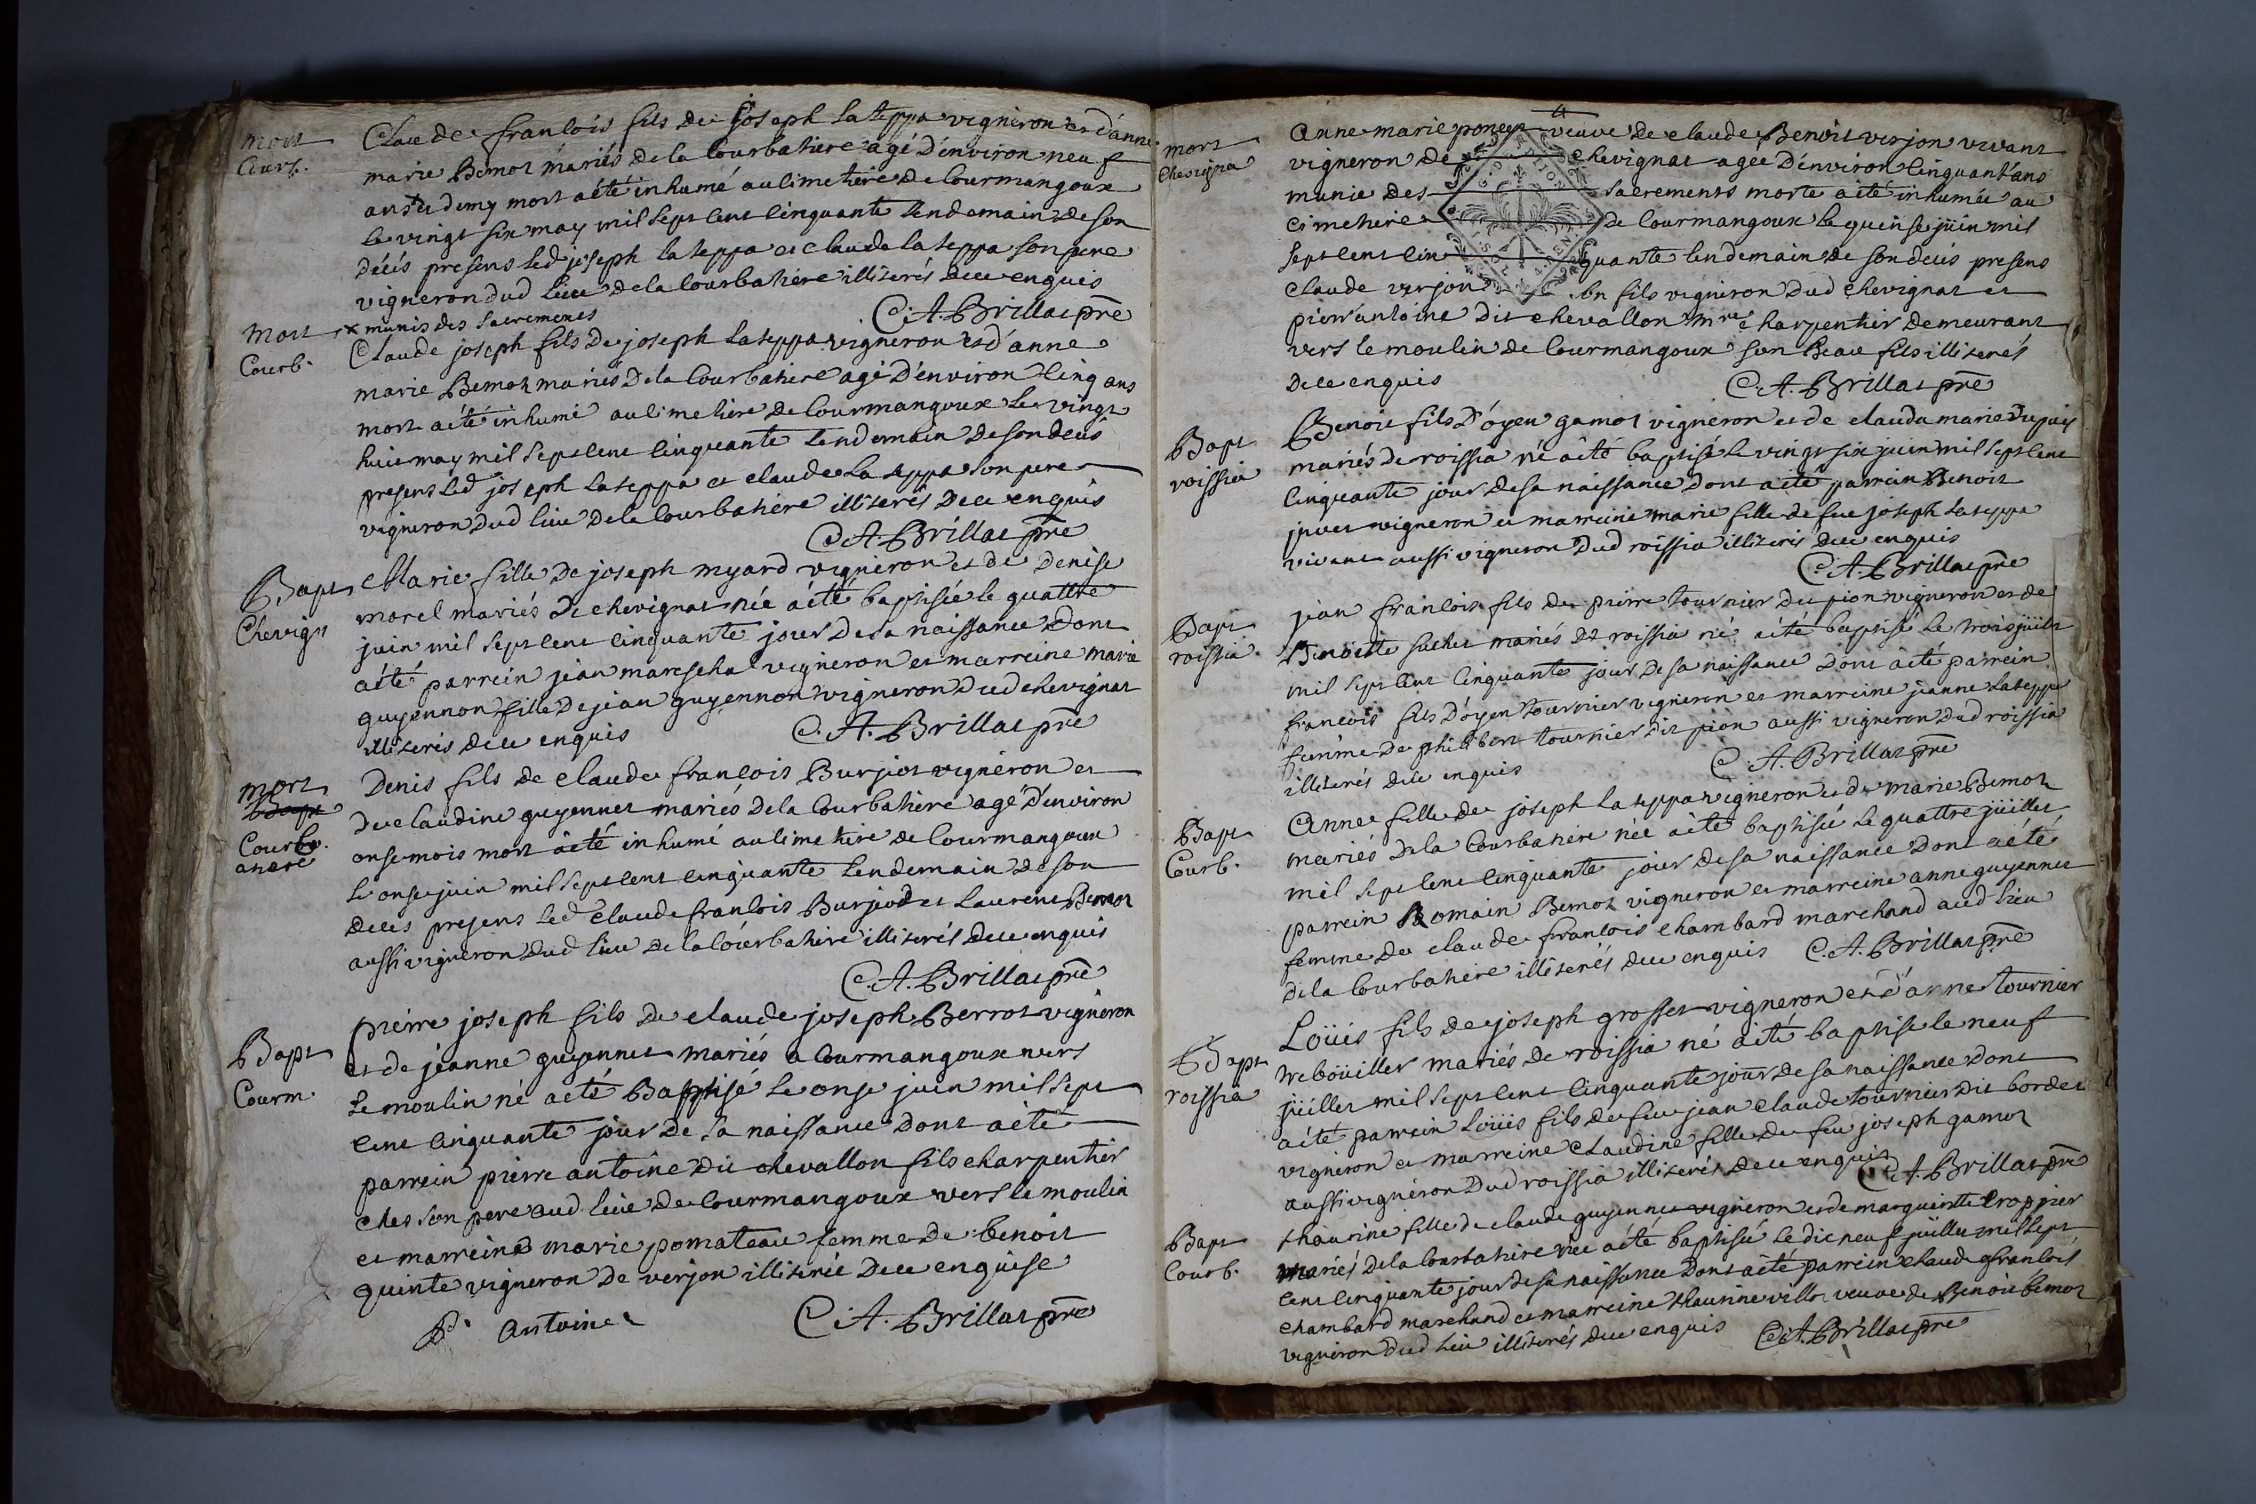 mort
Courb.
Claude francois fils de joseph la teppa vigneron et d'anne
marie Bemot mariés de la Courbatiere agé d'environ neuf
ans et demy mort a été inhumé au cimetiere de Courmangoux
le vingt six may mil sept cent cinquante lendemain de son
décés presens led joseph la teppa et claude la teppa son pere
vigneron dud lieu de la Courbatiere illiterés de ce enquis
x munis des sacremens C. A. Brillat prē
mort
Courb.
Claude joseph fils de joseph la teppa vigneron et d'anne
marie Bemot mariés de la Courbatiere agé d'environ cinq ans
mort a été inhumé au cimetiere de Courmangoux le vingt
huit may mil sept cent cinquante lendemain de son decés
presens led joseph la teppa et claude la teppa son pere
vigneron dud lieu de la Courbatiere illiterés de ce enquis
C. A. Brillat prē
Bapt
Chevign
Marie fille de joseph myard vigneron et de denise
morel mariés de chevignat née a été baptisée le quattre
juin mil sept cent cinquante jour de sa naissance dont
a été parrein jean mareschal vigneron et marreine marie
guyennon fille de jean guyennon vigneron dud chevignat
illiterés de ce enquis C. A. Brillat prē
mort
Bapt
Courb.
atiere
Denis fils de claude francois Burjiot vigneron et
de claudine guyennet mariés de la Courbatiere agé d'environ
onse mois mort a été inhumé au cimetiere de Courmangoux
le onse juin mil sept cent cinquante lendemain de son
decés presens led claude francois Burjiod et Laurent Bemot
aussi vigneron dud lieu de la Courbatiere illiterés de ce enquis
C. A. Brillat prē
Bapt
Courm.
pierre joseph fils de claude joseph Berrot vigneron
et de jeanne guyennet mariés a Courmangoux vers
le moulin né a été Baptisé le onse juin mil sept
cent cinquante jour de sa naissance dont a été
parrein pierre antoine dit chevallon fils charpentier
ches son pere aud lieu de Courmangoux vers le moulin
et marreine marie pomateau femme de benoit
quinte vigneron de verjon illiterée de ce enquise
P. Antoine C. A. Brillat prē
mort
Chevigna
Anne marie poncet veuve de claude Benoit verjon vivant
vigneron de chevignat agée d'environ cinquant'ans
munie des sacrements morte a été inhumée au
cimetiere de Courmangoux le quinse juin mil
sept cent cinquante lendemain de son decés presens
claude verjon son fils vigneron dud chevignat et
pierr'antoine dit chevallon mre charpentier demeurant
vers le moulin de Courmangoux son beau fils illiterés
de ce enquis C. A. Brillat prē
Bapt
roissia
Benoit fils d'oyen gamot vigneron et de clauda marie dupuy
mariés de roissia né a été baptisé le vingt six juin mil sept cent
cinquante jour de sa naissance dont a été parrein Benoit
vigneron et marreine marie fille de feu joseph la teppa
vivant aussi vigneron dud roissia illiterés de ce enquis
C. A. Brillat prē
Bapt
roissia.
jean francois fils de pierre tournier dit pion vigneron et de
Benoite suchet mariés de roissia né a été baptisé le trois jüilet
mil sept cent cinquante jour de sa naissance dont a été parrein
francois fils d'oyen tournier vigneron et marreine jeanne la teppe
femme de philibert tournier dit pion aussi vigneron dud roissia
illiterés de ce enquis C. A. Brillat prē
Bapt
Courb.
Anne fille de joseph la teppa vigneron et de marie Bemot
mariés de la Courbatiere née a été baptisée le quattre jüillet
mil sept cent cinquante jour de sa naissance dont a été
parrein Romain Bemot vigneron et marreine anne guyennet
femme de claude francois chambard marchand aud lieu
de la Courbatiere illiterés de ce enquis C. A. Brillat prē
Bapt
roissia
Loüis fils de joseph grosset vigneron et d'anne tournier
mariés de roissia né a été baptisé le neuf
jüillet mil sept cent cinquante jour de sa naissance dont
a été parrein Loüis fils de feu jean claude tournier dit bordet
vigneron et marreine claudine fille de feu joseph gamot
aussi vigneron dud roissia illiterés de ce enquis C. A. Brillat prē
Bapt
Courb.
thaurine fille de claude guyennet vigneron et de marguerite croppier
mariés de la Courbatiere née a été baptisée le dic neuf jüillet mil sept
cent cinquante jour de sa naissance dont a été parrein claude francois
chambard marchand et marreine thaurine villot veuve de Benoit bemot
vigneron dud lieu illiterés de ce enquis C. A. Brillat prē